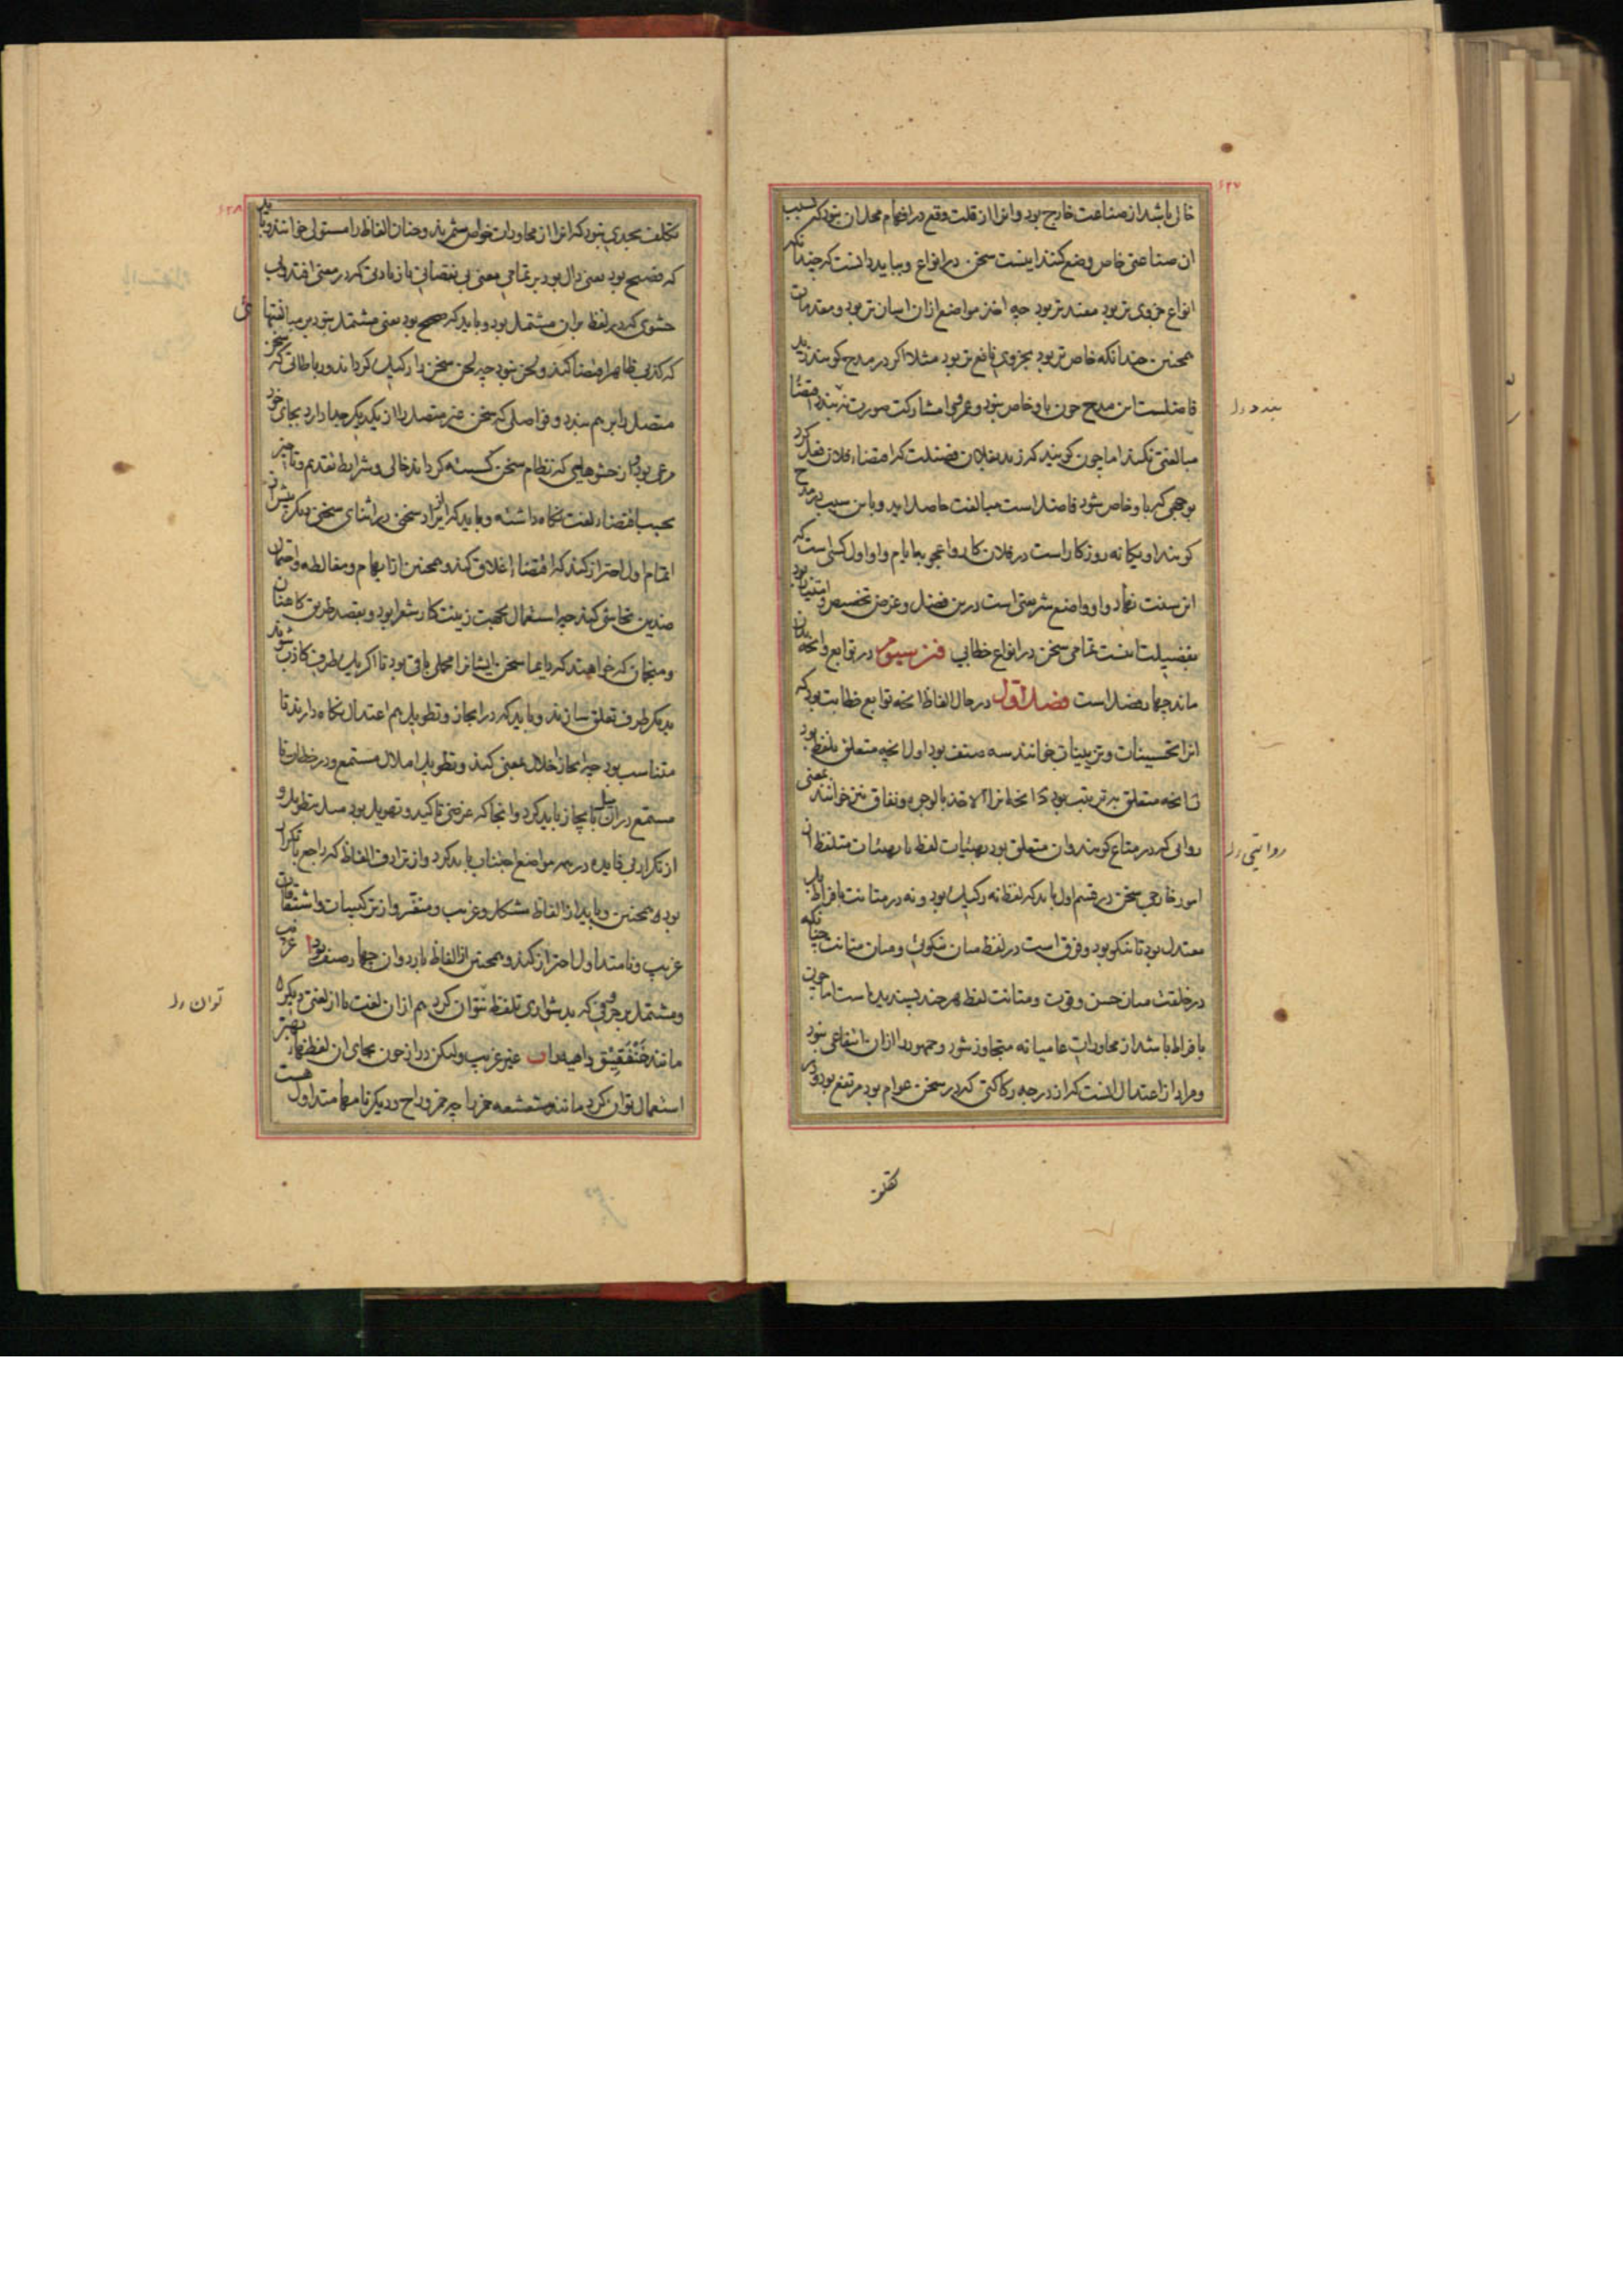 ۶۲۷
خالی باشد از صناعت خارج بود و انرا از قلت وقع در افهام محل ان نبود که بسبب
ان صناعتی خاص وضع کنند اینست سخن در انواع و بباید دانست که چندانکه
انواع جزوی تر بود مفیدتر بود چه اخذ مواضع ازان اسان تر بود و مقدمات
همچنین چندانکه خاص تر بود بجزوی نافع تر بود مثلا اکر در مدح کویند زید
فاضلست این مدح چون باو خاص نبود و عمرو را مشارکت صورت بندد اقتضاء
مبالغتی نکند اما چون کویند که زید بفلان فضیلت که اقتضاء فلان فعل کرد
بوجهی که باو خاص شود فاضل است مبالغت حاصل اید و باین سبب در مدح
کویند او یکانه روزکار است در فلان کار و اعجوبه ایام و او اول کسی است که
این سنت نهاد و او واضع شریعتی است درین فضل و غرض تخصیص و امتیاز بود
بفضیلت اینست تمامی سخن در انواع خطابی فن سیوم در توابع و انچه بدان
ماند چهار فصل است فصل اول در حال الفاظ انچه توابع خطابت بود که
انرا تحسینات و تزیینات خوانند سه صنف بود اول انچه متعلق بلفظ بود
ب انچه متعلق بترتیب بود ج انچه انرا الاخذ بالوجوه و نفاق نیز خوانند بمعنی
روایی که در متاع کویند و ان متعلق بود بهیئات لفظ یا بهیئات متلفظ از
امور خارجی سخن در قسم اول باید که لفظ نه رکیک بود و نه در متانت بافراط بل
معتدل بود تا نیکو بود و فرق است در لفظ میان نیکوئی و میان متانت چنانکه
در خلقت میان حسن و قوت و متانت لفظ هر چند پسندیده است اما چون
بافراط باشد از محاورات عامیانه متجاوز شود و جمهور را ازان انتفاعی نبود
و مراد از اعتدال انست که از درجه رکاکتی که در سخن عوام بود مرتفع بود و در
بندد
روایتی
تکلف
۶۲۸
تکلف بحدی نبود که انرا از محاورات خواص شمرند و چنان الفاظ را مستولی خوانند و باید
که فصیح بود یعنی دال بود بر تمامی معنی بی نقصانی یا زیادتی که در معنی افتد یا
حشوی که در لفظ بران مشتمل بود و باید که صحیح بود یعنی مشتمل نبود بر مبالغتهائی
که کذب ظاهر اقتضا کند و لحن نبود چه لحن سخن را رکیک کرداند و رباطاتی که سخن
متصل را بر هم بندد و فواصلی که سخن غیر متصل را از یکدیکر جدا دارد بجای خود
مرعی بود و از حشوهایی که نظام سخن کسسته کرداند خالی و شرایط تقدیم و تاخیر
بحسب اقتضاء لغت نکاه داشته و باید که از ایراد سخنی در اثنای سخنی دیکر پیش از
اتمام اول احتراز کند که اقتضاء اغلاق کند و همچنین از ایهام و مغالطه و احتمال
ضدین تحاشی کند چه استعمال بجهت زینت کار شعرا بود و بقصد طریق کاهنان
و منجمان که خواهند که دایما سخن ایشانرا محملی باقی بود تا اکر بیک طرف کاذب شوند
بدیکر طرف تعلق سازند و باید که در ایجاز و تطویل هم اعتدال نکاه دارند تا
متناسب بود چه ایجاز اخلال بمعنی کند و تطویل املال مستمع و در خطاب با
مستمع دران میل بایجاز باید کرد و انجا که غرض تاکید و تهویل بود میل بتطویل و
از تکرار بی فایده در همه مواضع اجتناب باید کرد و از ترادف الفاظ که راجع با تکرار
بود همچنین و باید از الفاظ مشکل و غریب و منفر و از ترکیبات و اشتقاقات
غریب و نامتداول احتراز کند و همچنین از الفاظ بارد و ان چهار صنف بود ا غریب
و مشتمل بر حرفی که بدشواری تلفظ نتوان کرد هم ازان لغت یا از لغتی دیکر
مانند خنفقیق داهیه را ب غیر غریب ولیکن دراز چون بجای ان لفظ بهتر
استعمال توان کرد مانند مشعشعه خمر را چه خمر و راح و دیکر نامها متداول هست
توان